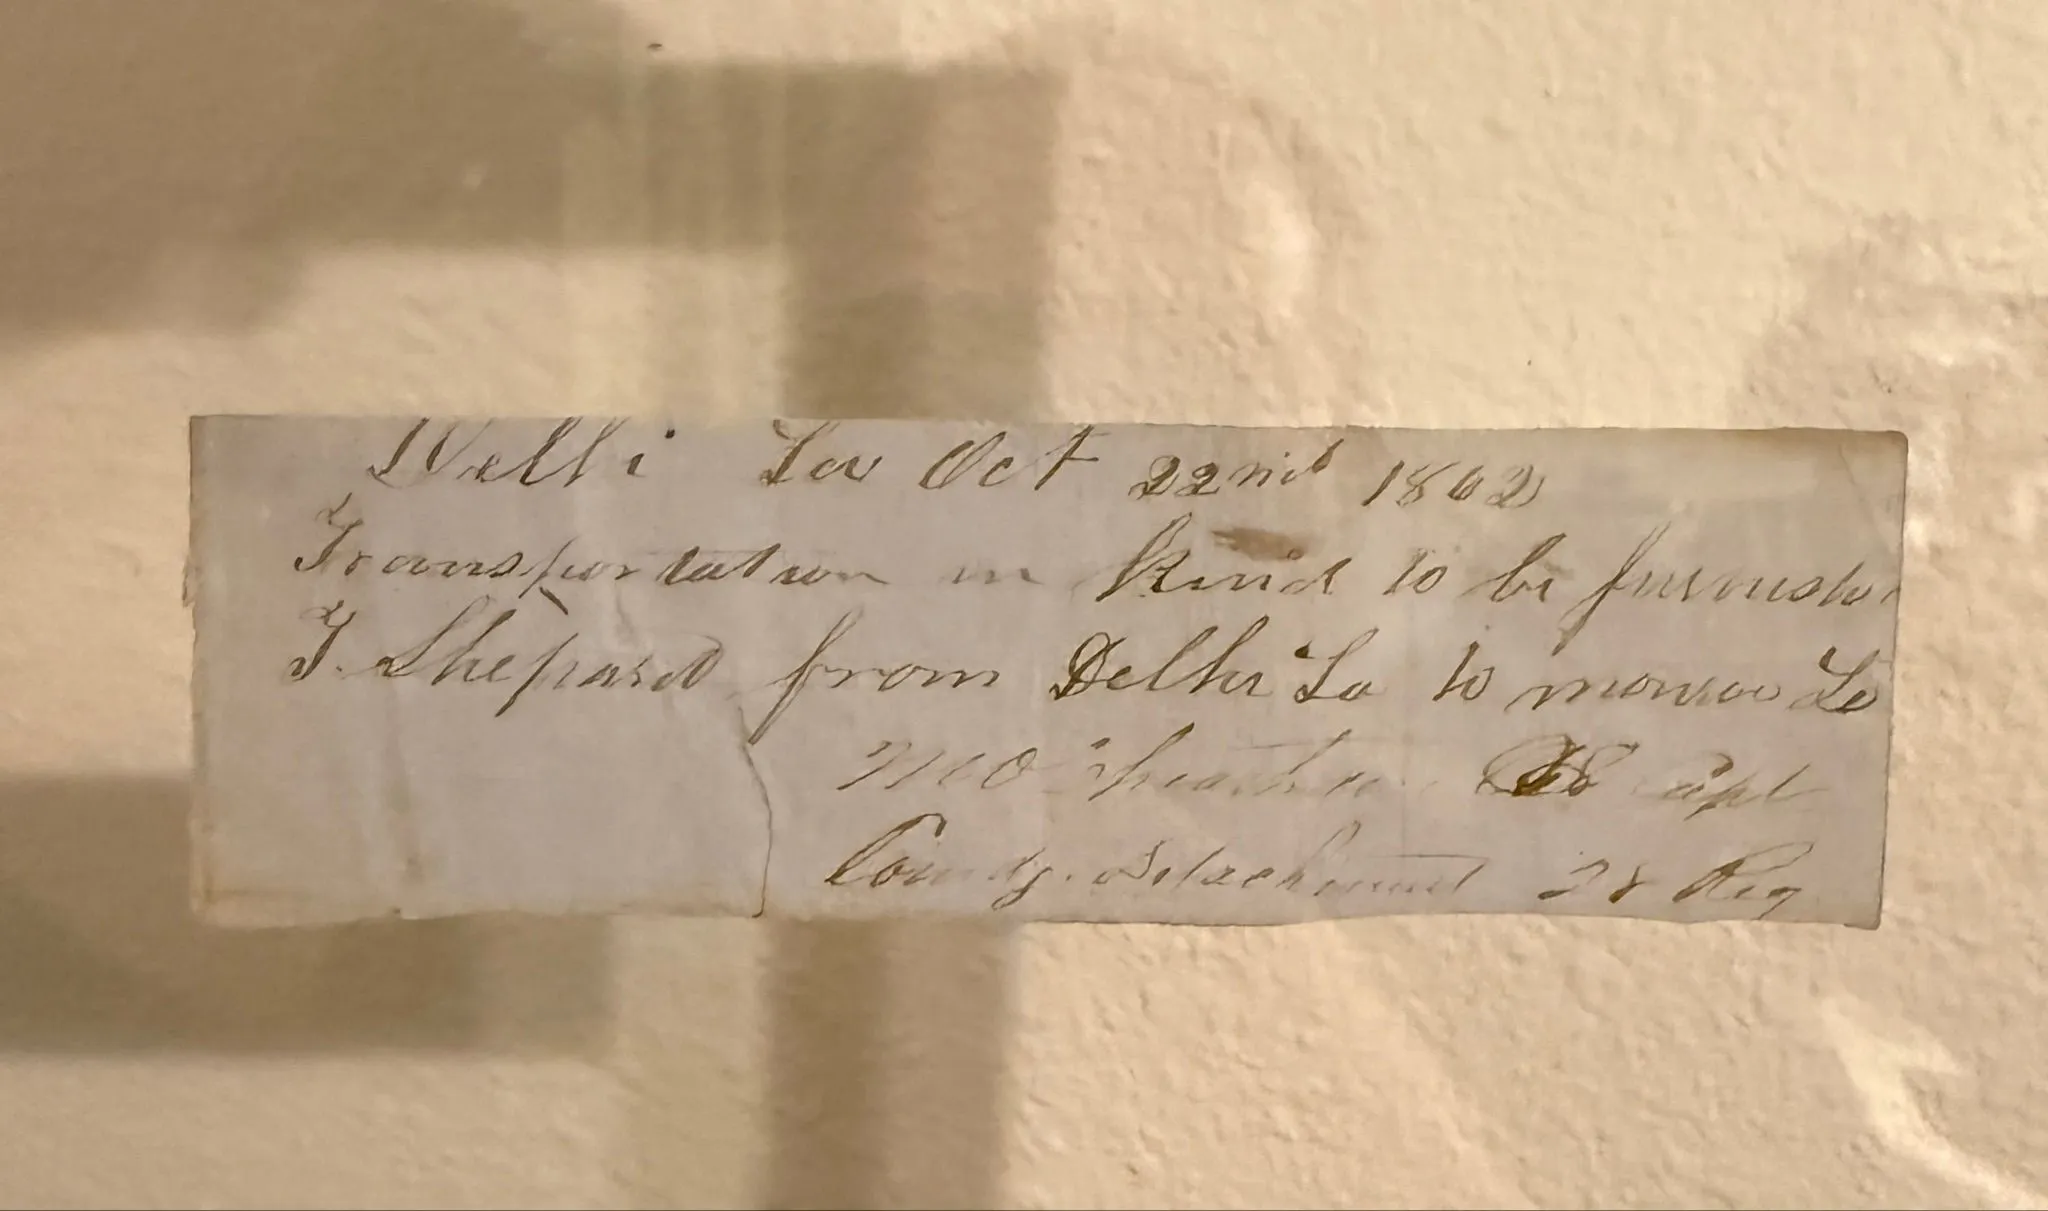 Delhi La Oct 22nd 1862
Transportation in Kind to be furnish
T. Shepard from Delhi La to monroe La
M O Cheatham Capt
Comdg. Detachment 28 Reg